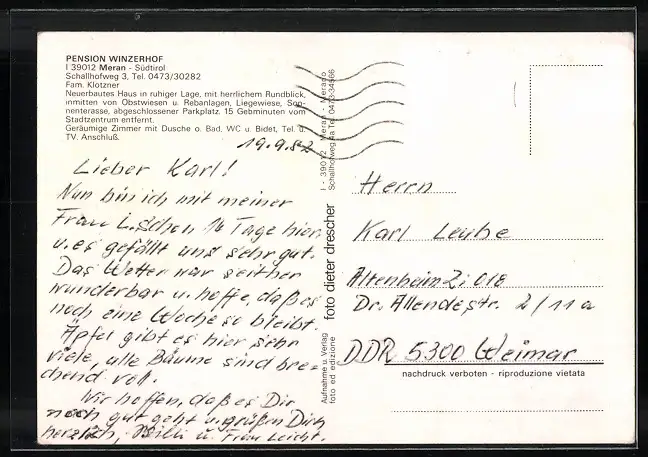 PENSION WINZERHOF
I 39012 Meran - Südtirol
Schallhofweg 3, Tel. 0473/30282
Fam. Klotzner
Neuerbautes Haus in ruhiger Lage, mit herrlichem Rundblick,
inmitten von Obstwiesen u. Rebanlagen, Liegewiese, Son-
nenterasse, abgeschlossener Parkplatz. 15 Gehminuten vom
Stadtzentrum entfernt.
Geräumige Zimmer mit Dusche o. Bad, WC u. Bidet, Tel. u.
TV. Anschluß.
19.9.82
Lieber Karl!
Nun bin ich mit meiner
Frau schon 14 Tage hier
u. es gefällt uns sehr gut.
Das Wetter war seither
wunderbar u. hoffe, daß es
noch eine Woche so bleibt.
Äpfel gibt es hier sehr
viele, alle Bäume sind bre-
chend voll.
Wir hoffen, daß es Dir
noch gut geht u. grüßen Dich
herzlich, Willi u. Frau Leicht.
Aufnahme u. Verlag
foto ed edizione
foto dieter drescher
I - 39012 Meran - Merano
Schallhofweg Tel. 0473-34566
Herrn
Karl Leube
Altenheim Zi 018
Dr. Allendestr. 2/11a
DDR 5300 Weimar
nachdruck verboten - riproduzione vietata